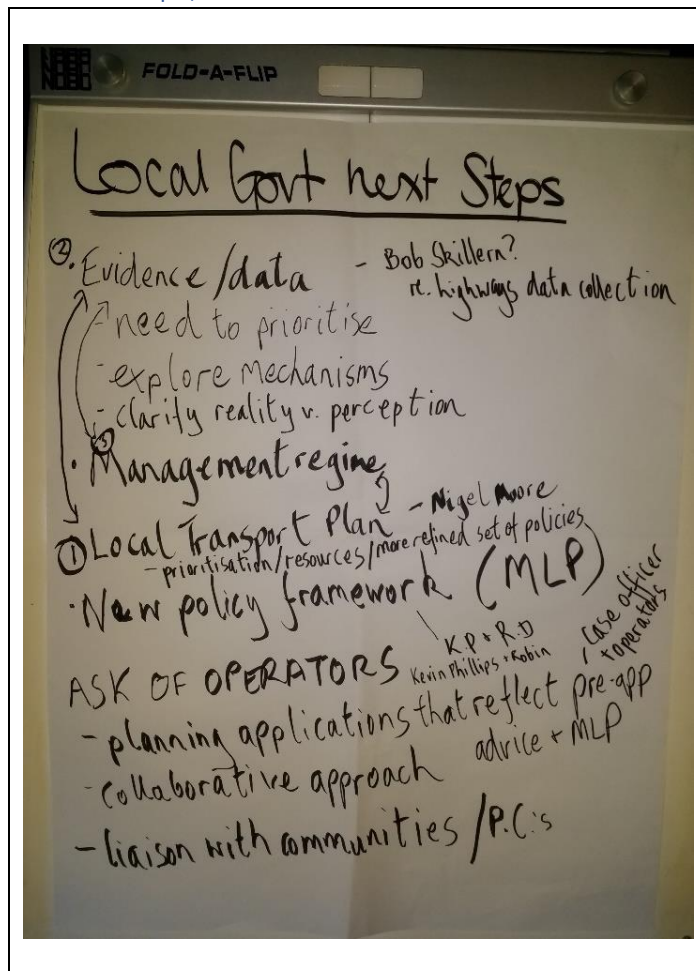 FOLD-A-FLIP
Local Govt next Steps
② · Evidence/data - Bob Skillern?
re. highways data collection
- need to prioritise
- explore mechanisms
- clarify reality v. perception
③
· Management regime
① Local Transport Plan - Nigel Moore
- prioritisation/resources/more refined set of policies
· New policy framework (MLP)
K.P + R.D
Kevin Phillips + Robin
ASK OF OPERATORS
- planning applications that reflect pre-app
advice + MLP
, case officer
+ operators
- collaborative approach
- liaison with communities /P.C.'s